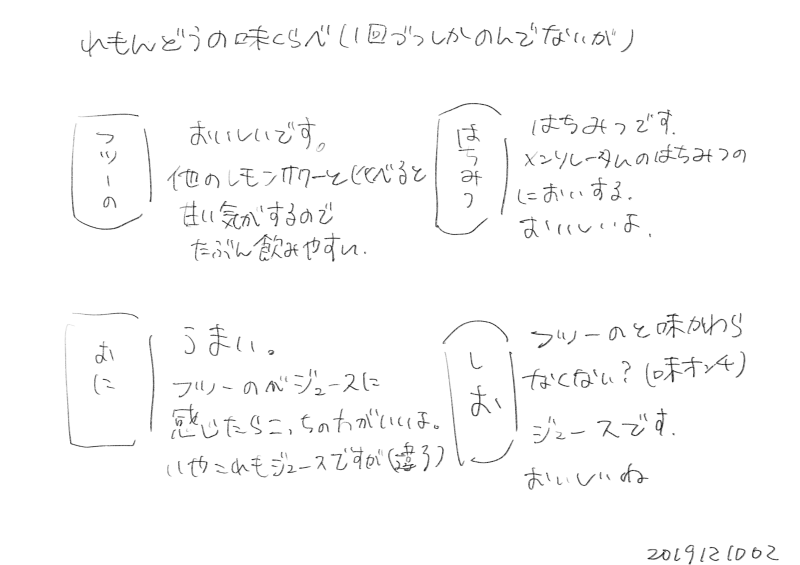 れもんどうの味くらべ(1回づつしかのんでないが)
フツーの
おいしいです。
他のレモンサワーとくらべると
甘い気がするので
たぶん飲みやすい.
はちみつ
はちみつです.
メンソレータムのはちみつの
においする.
おいしいよ.
おに
うまい。
フツーのがジュースに
感じたらこっちのがいいよ。
いやこれもジュースですが(違う)
しお
フツーのと味かわら
なくない?(味オンチ)
ジュースです.
おいしいね
2019121002